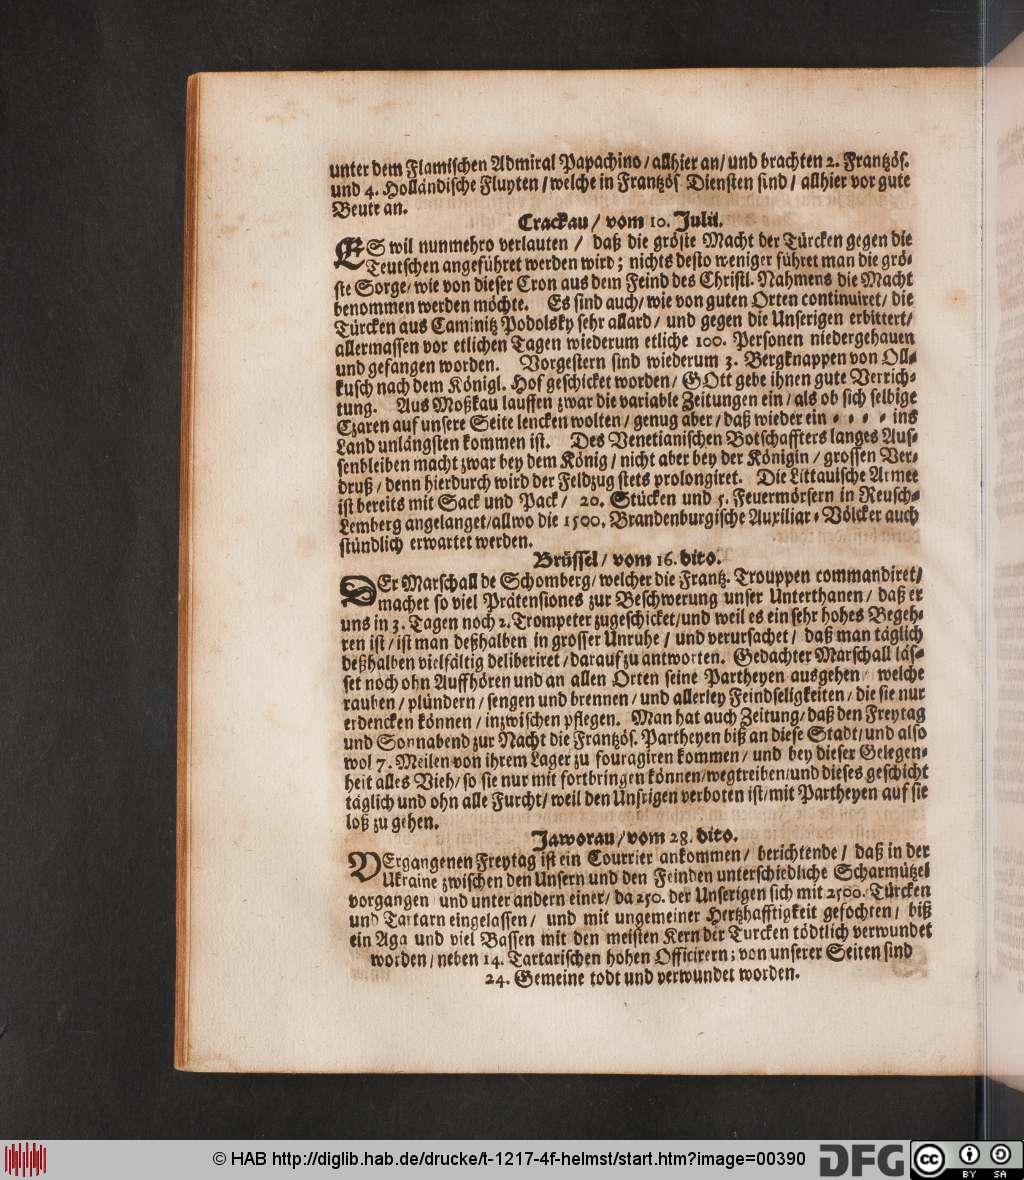 unter dem Flamischen Admiral Papachino / allhier an / und brachten 2. Frantzös.
und 4. Holländische Fluyten / welche in Frantzös Diensten sind / allhier vor gute
Beute an.
Crackau / vom 10. Julii.
ES wil nunmehro verlauten / daß die gröste Macht der Türcken gegen die
Teutschen angeführet werden wird; nichts desto weniger führet man die grö-
ste Sorge / wie von dieser Cron aus dem Feind des Christl. Nahmens die Macht
benommen werden möchte. Es sind auch / wie von guten Orten continuiret / die
Türcken aus Caminitz Podolsky sehr allard / und gegen die Unserigen erbittert /
allermassen vor etlichen Tagen wiederum etliche 100. Personen niedergehauen
und gefangen worden. Vorgestern sind wiederum 3. Bergknappen von Oll-
kusch nach dem Königl. Hof geschicket worden / GOtt gebe ihnen gute Verrich-
tung. Aus Moßkau lauffen zwar die variable Zeitungen ein / als ob sich selbige
Czaren auf unsere Seite lencken wolten / genug aber / daß wieder ein - - - - ins
Land unlängsten kommen ist. Des Venetianischen Botschaffters langes Aus-
senbleiben macht zwar bey dem König / nicht aber bey der Königin / grossen Ver-
druß / denn hierdurch wird der Feldzug stets prolongiret. Die Littauische Armee
ist bereits mit Sack und Pack / 20. Stücken und 5. Feuermörsern in Reusch-
Lemberg angelanget / allwo die 1500. Brandenburgische Auxiliar-Völcker auch
stündlich erwartet werden.
Brüssel / vom 16. dito.
DEr Marschall de Schomberg / welcher die Frantz. Trouppen commandiret /
machet so viel Prätensiones zur Beschwerung unser Unterthanen / daß er
uns in 3. Tagen noch 2. Trompeter zugeschicket / und weil es ein sehr hohes Begeh-
ren ist / ist man deßhalben in grosser Unruhe / und verursachet / daß man täglich
deßhalben vielfältig deliberiret / darauf zu antworten. Gedachter Marschall läs-
set noch ohn Auffhören und an allen Orten seine Partheyen ausgehen / welche
rauben / plündern / sengen und brennen / und allerley Feindseligkeiten / die sie nur
erdencken können / inzwischen pflegen. Man hat auch Zeitung / daß den Freytag
und Sonnabend zur Nacht die Frantzös. Partheyen biß an diese Stadt / und also
wol 7. Meilen von ihrem Lager zu fouragiren kommen / und bey dieser Gelegen-
heit alles Vieh / so sie nur mit fortbringen können / wegtreiben / und dieses geschicht
täglich und ohn alle Furcht / weil den Unsrigen verboten ist / mit Partheyen auf sie
loß zu gehen.
Jaworau / vom 28. dito.
VErgangenen Freytag ist ein Courrier ankommen / berichtende / daß in der
Ukraine zwischen den Unsern und den Feinden unterschiedliche Scharmützel
vorgangen und unter andern einer / da 250. der Unserigen sich mit 2500. Türcken
und Tartarn eingelassen / und mit ungemeiner Hertzhafftigkeit gefochten / biß
ein Aga und viel Bassen mit den meisten Kern der Turcken tödtlich verwundet
worden / neben 14. Tartarischen hohen Officirern; von unserer Seiten sind
24. Gemeine todt und verwundet worden.
© HAB http://diglib.hab.de/drucke/t-1217-4f-helmst/start.htm?image=00390
DFG
cc BY SA